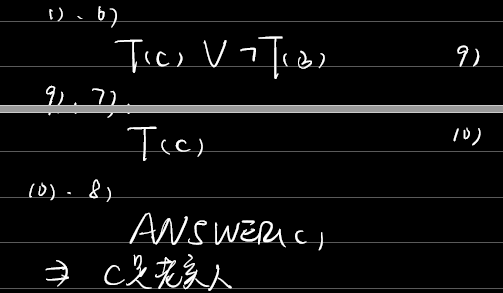 1)、6)
T(C) ∨ ¬T(B) 9)
9)、7)、
T(C) 10)
10)、8)
ANSWER(C)
⇒ C是老实人